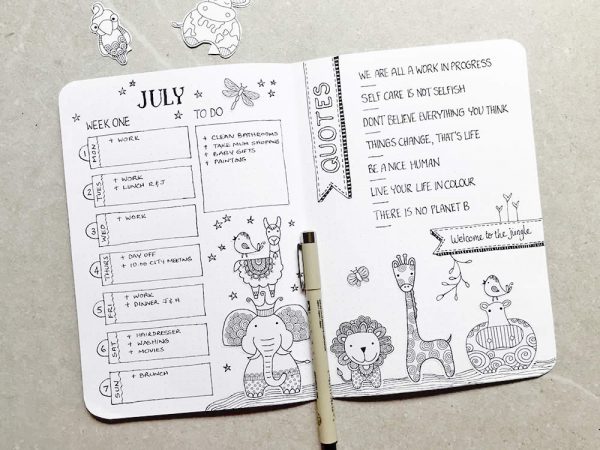 JULY
WEEK ONE
1 MON
+ WORK
2 TUES
+ WORK
+ LUNCH R & J
3 WED
+ WORK
4 THURS
+ DAY OFF
+ 10:00 CITY MEETING
5 FRI
+ WORK
+ DINNER J & H
6 SAT
+ HAIRDRESSER
+ WASHING
+ MOVIES
7 SUN
+ BRUNCH
TO DO
+ CLEAN BATHROOMS
+ TAKE MUM SHOPPING
+ BABY GIFTS
+ PAINTING
QUOTES
WE ARE ALL A WORK IN PROGRESS
SELF CARE IS NOT SELFISH
DON'T BELIEVE EVERYTHING YOU THINK
THINGS CHANGE, THAT'S LIFE
BE A NICE HUMAN
LIVE YOUR LIFE IN COLOUR
THERE IS NO PLANET B
Welcome to the Jungle